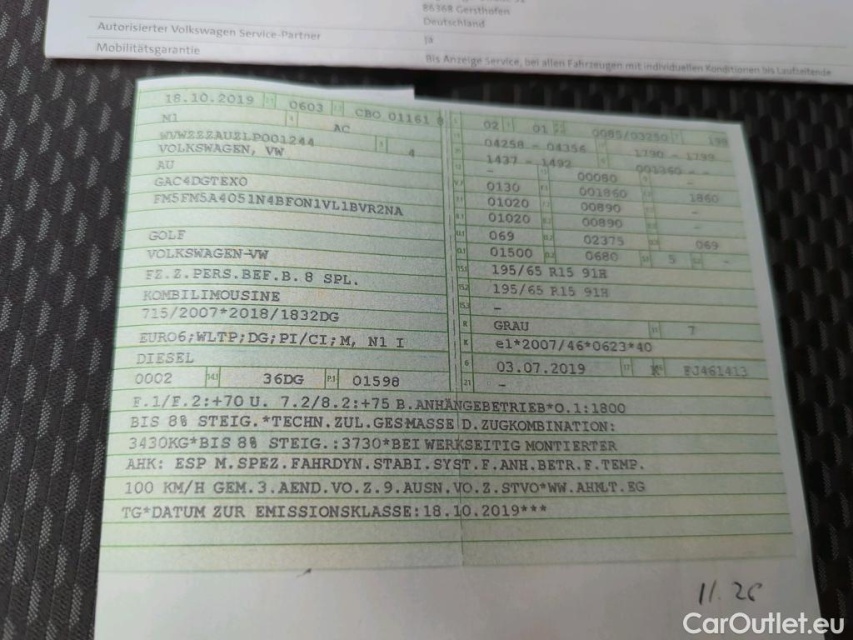 86368 Gersthofen
Deutschland
Autorisierter Volkswagen Service-Partner
Ja
Mobilitätsgarantie
Bis Anzeige Service, bei allen Fahrzeugen mit individuellen Konditionen bis Laufzeitende
18.10.2019 0603 CBO 01161
N1 AC 02 01 0085/03250
WVWZZZAUZLP001244 04258 - 04356 1790 - 1799
VOLKSWAGEN, VW 4 1437 - 1492
AU - 00080
GAC4DGTEX0 0130 001860 1860
FM5FM5A4051N4BFON1VL1BVR2NA 01020 00890
01020 00890
GOLF 069 02375 069
VOLKSWAGEN-VW 01500 0680 5 -
FZ.Z.PERS.BEF.B. 8 SPL. 195/65 R15 91H
KOMBILIMOUSINE 195/65 R15 91H
715/2007*2018/1832DG -
GRAU 7
EURO6;WLTP;DG;PI/CI;M, N1 I e1*2007/46*0623*40
DIESEL 03.07.2019 FJ461413
0002 14.1 36DG P.1 01598 21 -
F.1/F.2:+70 U. 7.2/8.2:+75 B.ANHÄNGEBETRIEB*O.1:1800
BIS 8% STEIG.*TECHN.ZUL.GESMASSE D.ZUGKOMBINATION:
3430KG*BIS 8% STEIG.:3730*BEI WERKSEITIG MONTIERTER
AHK: ESP M.SPEZ.FAHRDYN.STABI.SYST.F.ANH.BETR.F.TEMP.
100 KM/H GEM.3.AEND.VO.Z.9.AUSN.VO.Z.STVO*WW.AHM.T.EG
TG*DATUM ZUR EMISSIONSKLASSE:18.10.2019***
11.26
CarOutlet.eu